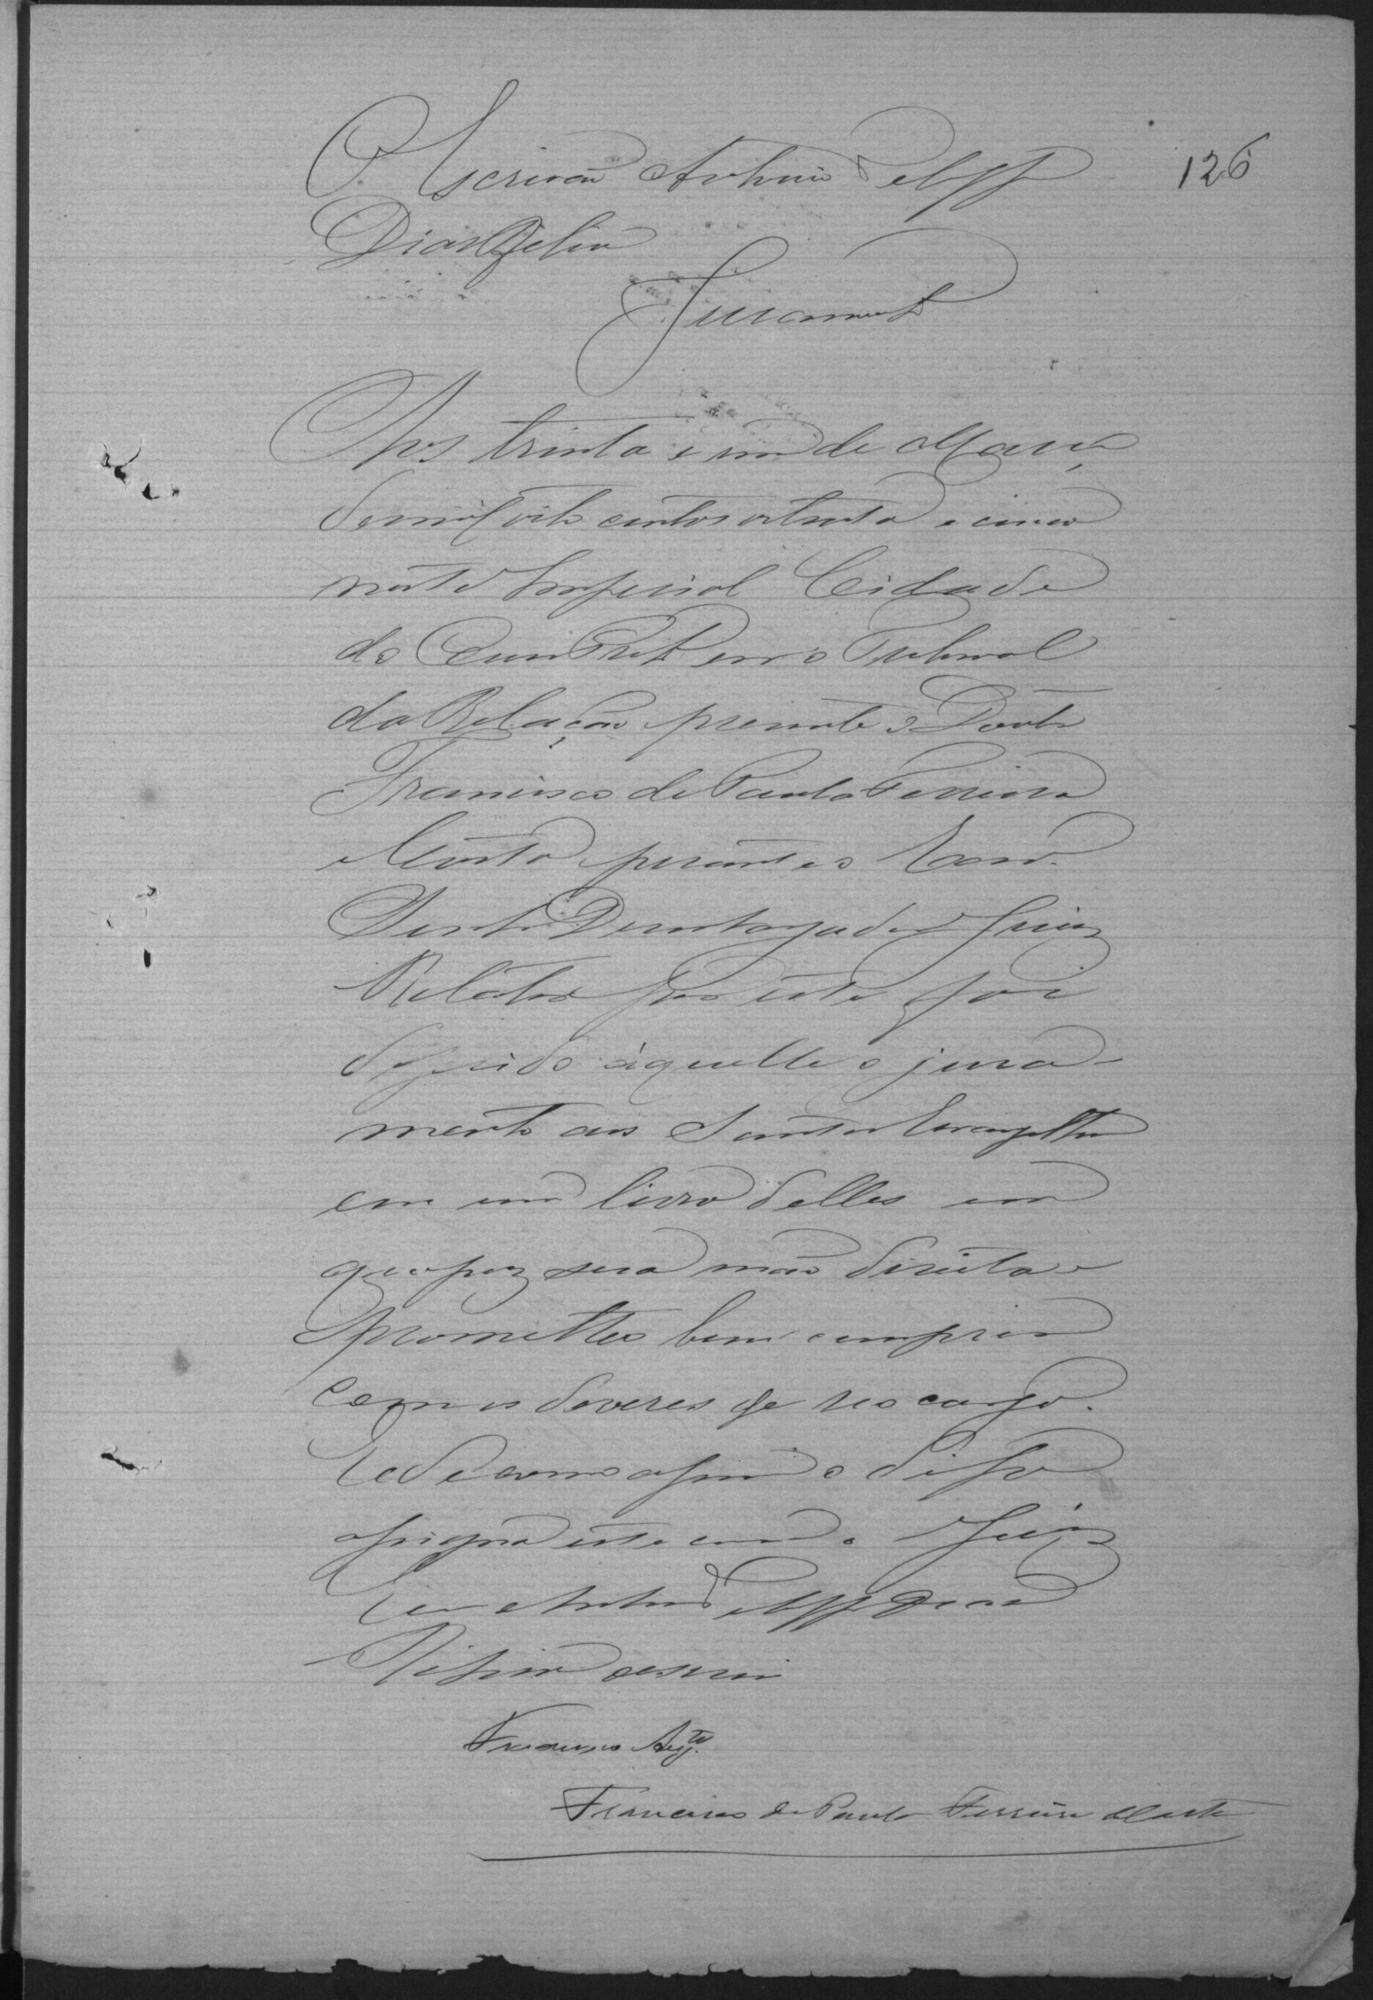 126
O Escrivão Antonio
Dias
Juramento
Aos trinta e um de Março
de mil oito centos oitenta e cinco
nesta Imperial Cidade
de Ouro Preto em o Tribunal
da Relação presente o Doutor
Francisco de Paula Ferreira
e Costa perante o Exmo.
Senhor Desembargador Juiz
Relator por este foi
deferido áquelle o jura-
mento aos Santos Evangelhos
em um livro delles em
que poz sua mão direita e
prometteo bem cumprir
com os deveres de seo cargo.
E de como assim o disse
assigna este com o Juiz
Eu Antonio
escrevi
Francisco de Paula Ferreira e Costa